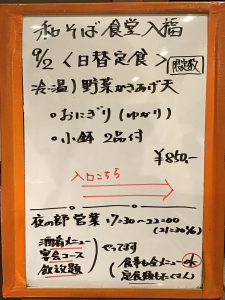 和そば食堂入福
9/2 〈日替定食〉 限定数
冷・温) 野菜かきあげ天
・おにぎり(ゆかり)
・小鉢 2品付
¥850.-
入口こちら
夜の部 営業 17:30~22:00
(21:30 %)
酒肴メニュー
宴会コース
飲放題
やってます
(食事も全メニューOK
定食類もたくさん)